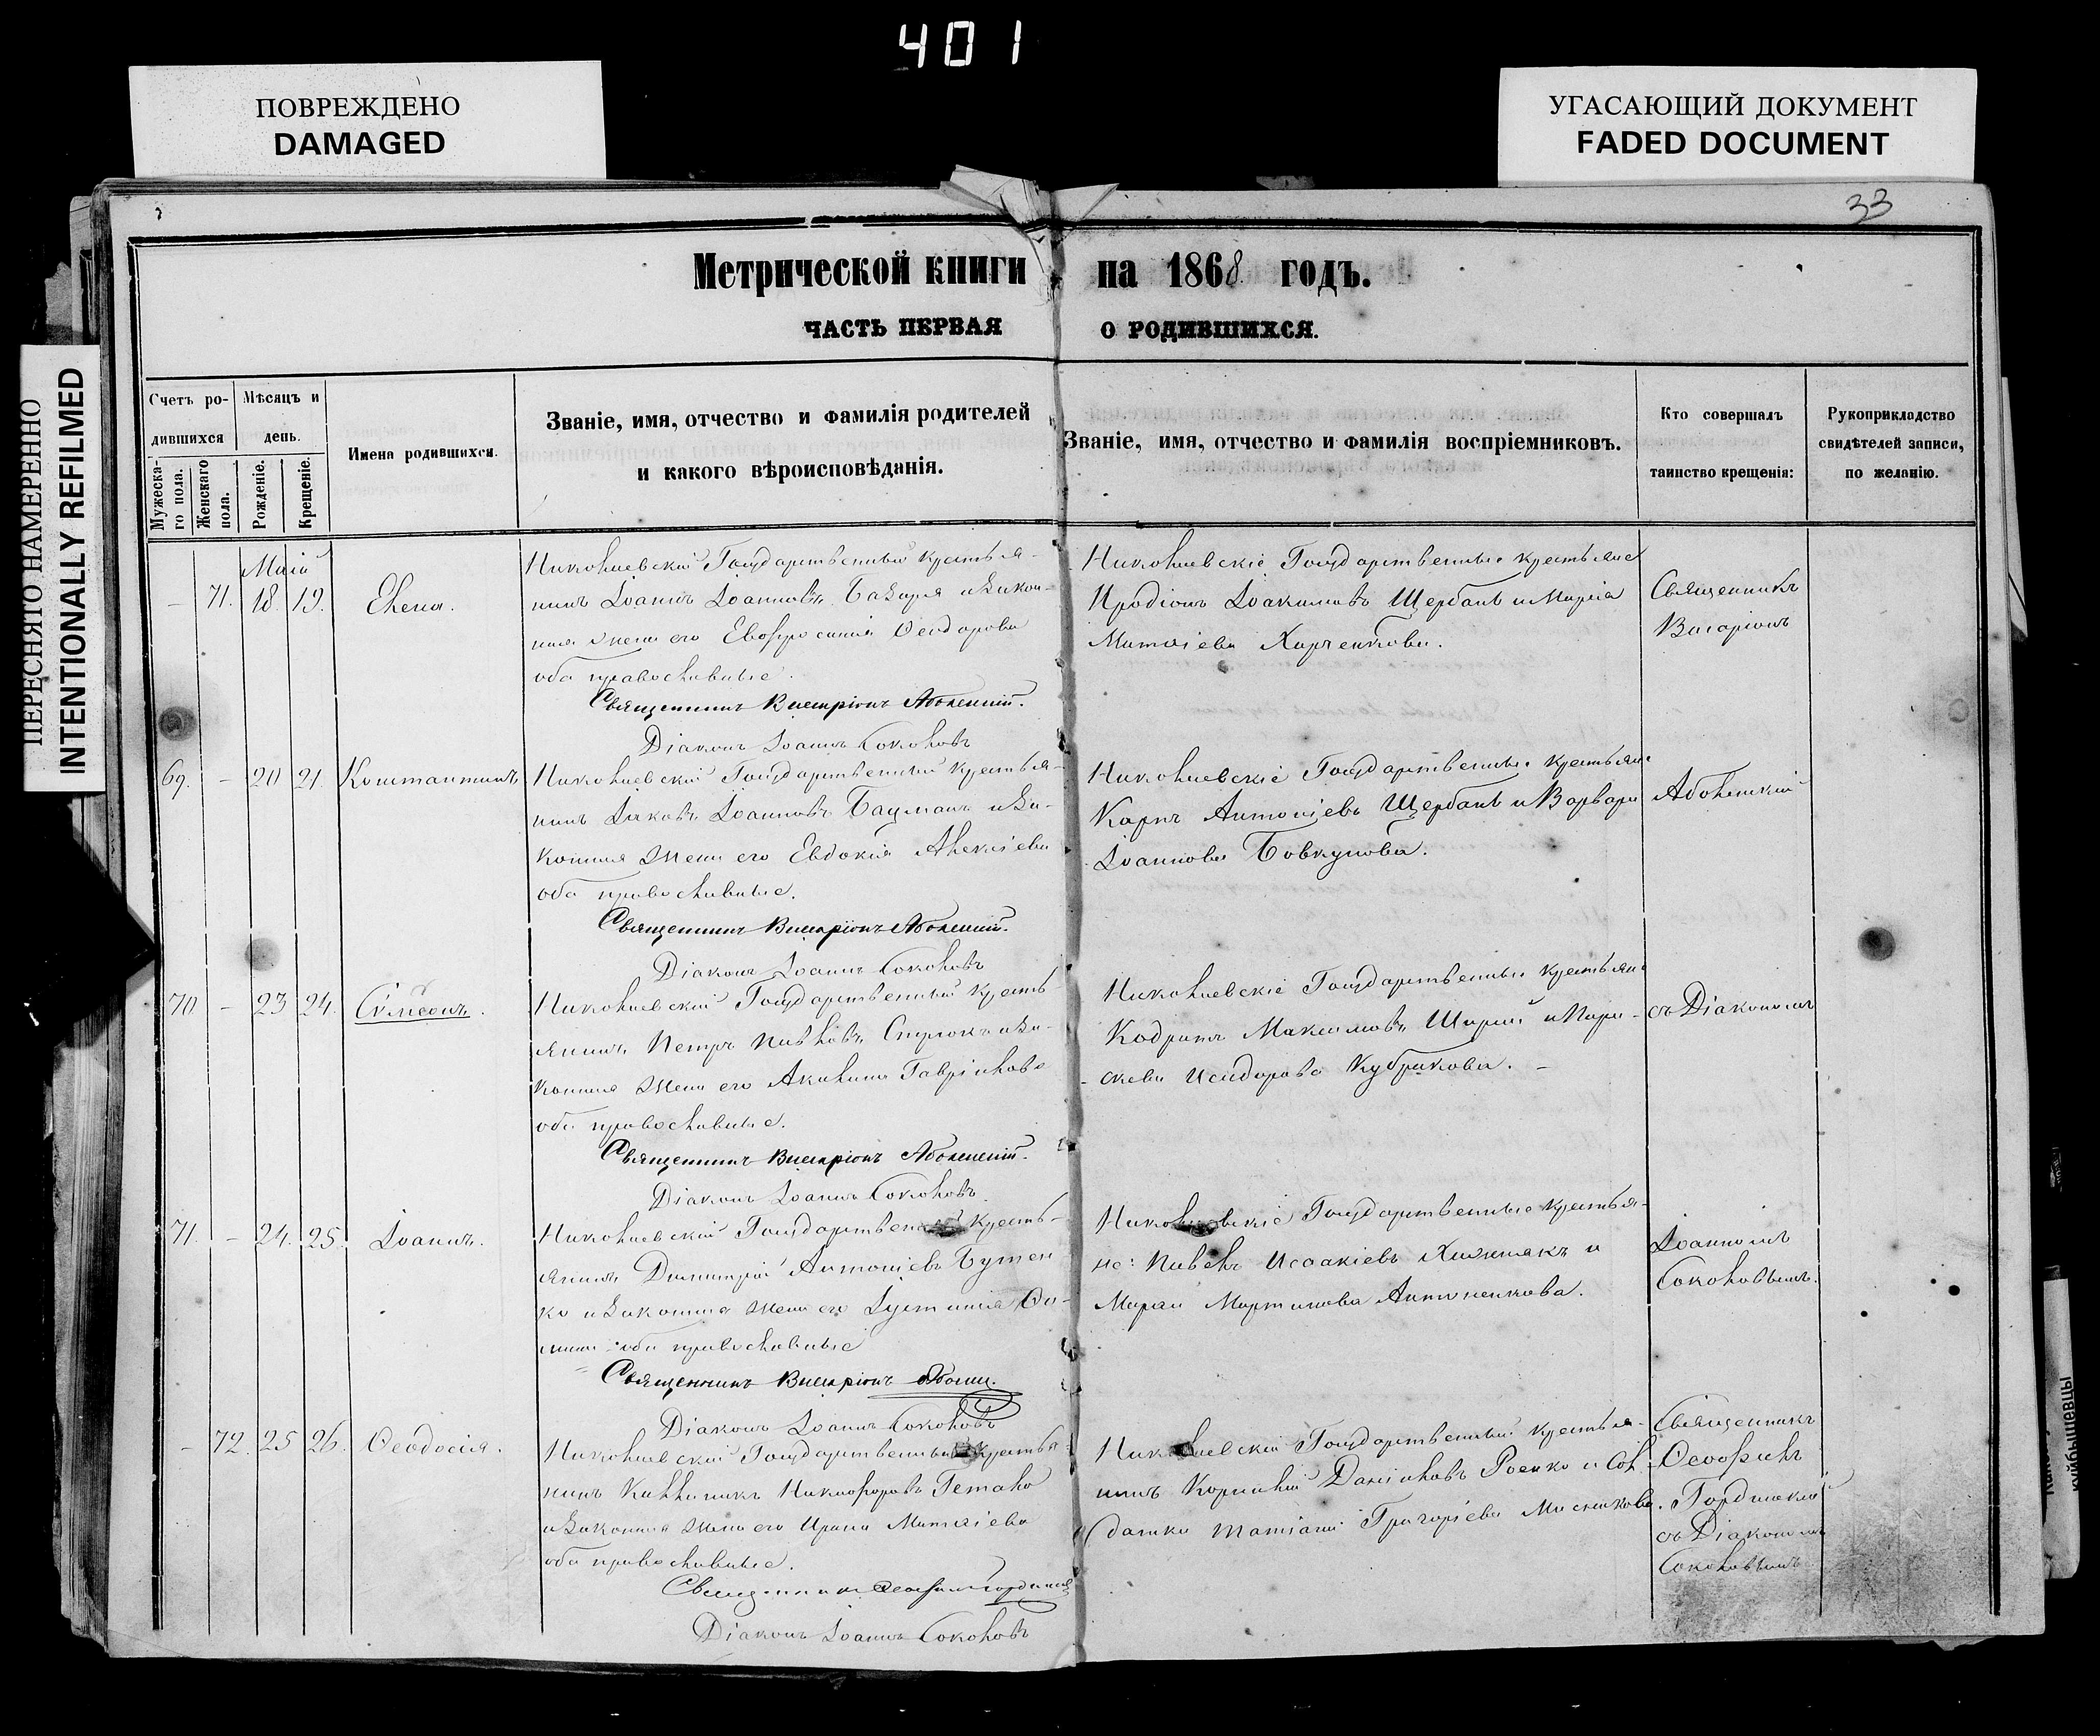 401
ПОВРЕЖДЕНО
DAMAGED
УГАСАЮЩИЙ ДОКУМЕНТ
FADED DOCUMENT
ПЕРЕСНЯТО НАМЕРЕННО
INTENTIONALLY REFILMED
33
Метрической книги на 1868 годъ.
ЧАСТЬ ПЕРВАЯ О РОДИВШИХСЯ.
Счетъ ро-
дившихся
Мужеска-
го пола.
Женскаго
пола.
Мѣсяцъ и
день.
Рожденіе.
Крещеніе.
Имена родившихся.
Званіе, имя, отчество и фамилія родителей
и какого вѣроисповѣданія.
Званіе, имя, отчество и фамилія воспріемниковъ.
Кто совершалъ
таинство крещенія:
Рукоприкладство
свидѣтелей записи,
по желанію.
Маій
– 71. 18. 19. Елена.
Николаевскій Государственный крестья-
нинъ Іоаннъ Іоанновъ и закон-
ная жена его Евфросинія Ѳеодорова
оба православные.
Священникъ Виссаріонъ
Діаконъ Іоаннъ Соколовъ
Николаевскіе Государственные крестьяне
Иродіонъ Іоакимовъ Щербакъ и Марія
Матѳіева Харченкова.
Священникъ
Висаріонъ
69. – 20 21. Константинъ
Николаевскій Государственный крестья-
нинъ Іаковъ Іоанновъ Бацманъ и за-
конная жена его Евдокія Алексіева
оба православные.
Священникъ Виссаріонъ
Діаконъ Іоаннъ Соколовъ
Николаевскіе Государственные крестьяне
Карпъ Антоніевъ Щербакъ и Варвара
Іоаннова Бовкунова.
70. – 23 24. Сѵмеонъ.
Николаевскій Государственный кресть-
янинъ Петръ Павловъ и за-
конная жена его Акилина Гавріилова
оба православные.
Священникъ Виссаріонъ
Діаконъ Іоаннъ Соколовъ.
Николаевскіе Государственные крестьяне
Кодратъ Максимовъ Шарый и Пара-
скева Исидорова Кубракова. –
съ Діакономъ
71. – 24. 25. Іоаннъ.
Николаевскій Государственный кресть-
янинъ Димитрій Антоніевъ Бутен
ко и законная жена его Іустинія Ѳо-
мина оба православные
Священникъ Виссаріонъ
Діаконъ Іоаннъ Соколовъ
Николаевскіе Государственные крестья-
не: Павелъ Исаакіевъ Хижнякъ и
Марѳа Мартинова Антоненкова.
Іоанномъ
Соколовымъ.
– 72. 25 26. Ѳеодосія.
Николаевскій Государственный крестья-
нинъ Каллиникъ Никифоровъ Гетало
и законная жена его Ирина Матѳіева
оба православные.
Священникъ Ѳеофилъ
Діаконъ Іоаннъ Соколовъ
Николаевскій Государственный крестья-
нинъ Корнилій Даніиловъ Роенко и Сол-
датка Татіана Григоріева
Священникъ
Ѳеофилъ
съ Діакономъ
Соколовымъ